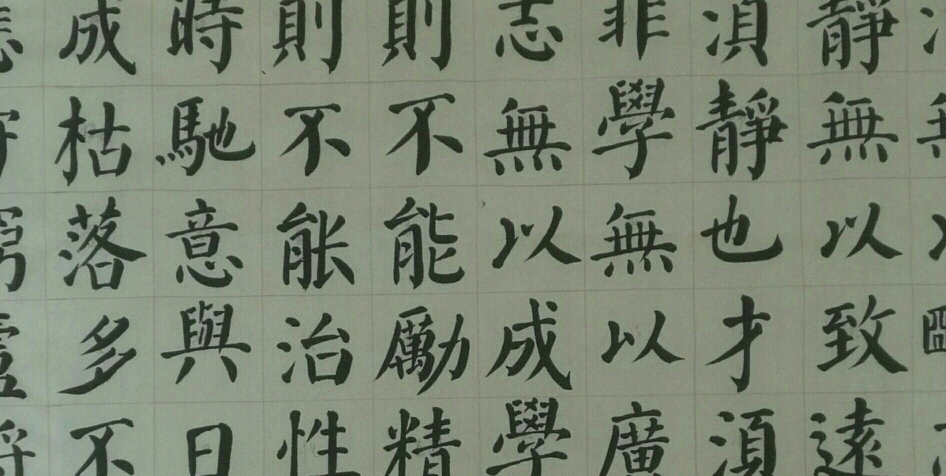 靜無以致遠
湏靜也才湏
非學無以廣
志無以成學
則不能勵精
則不能治性
時馳意與日
成枯落多不